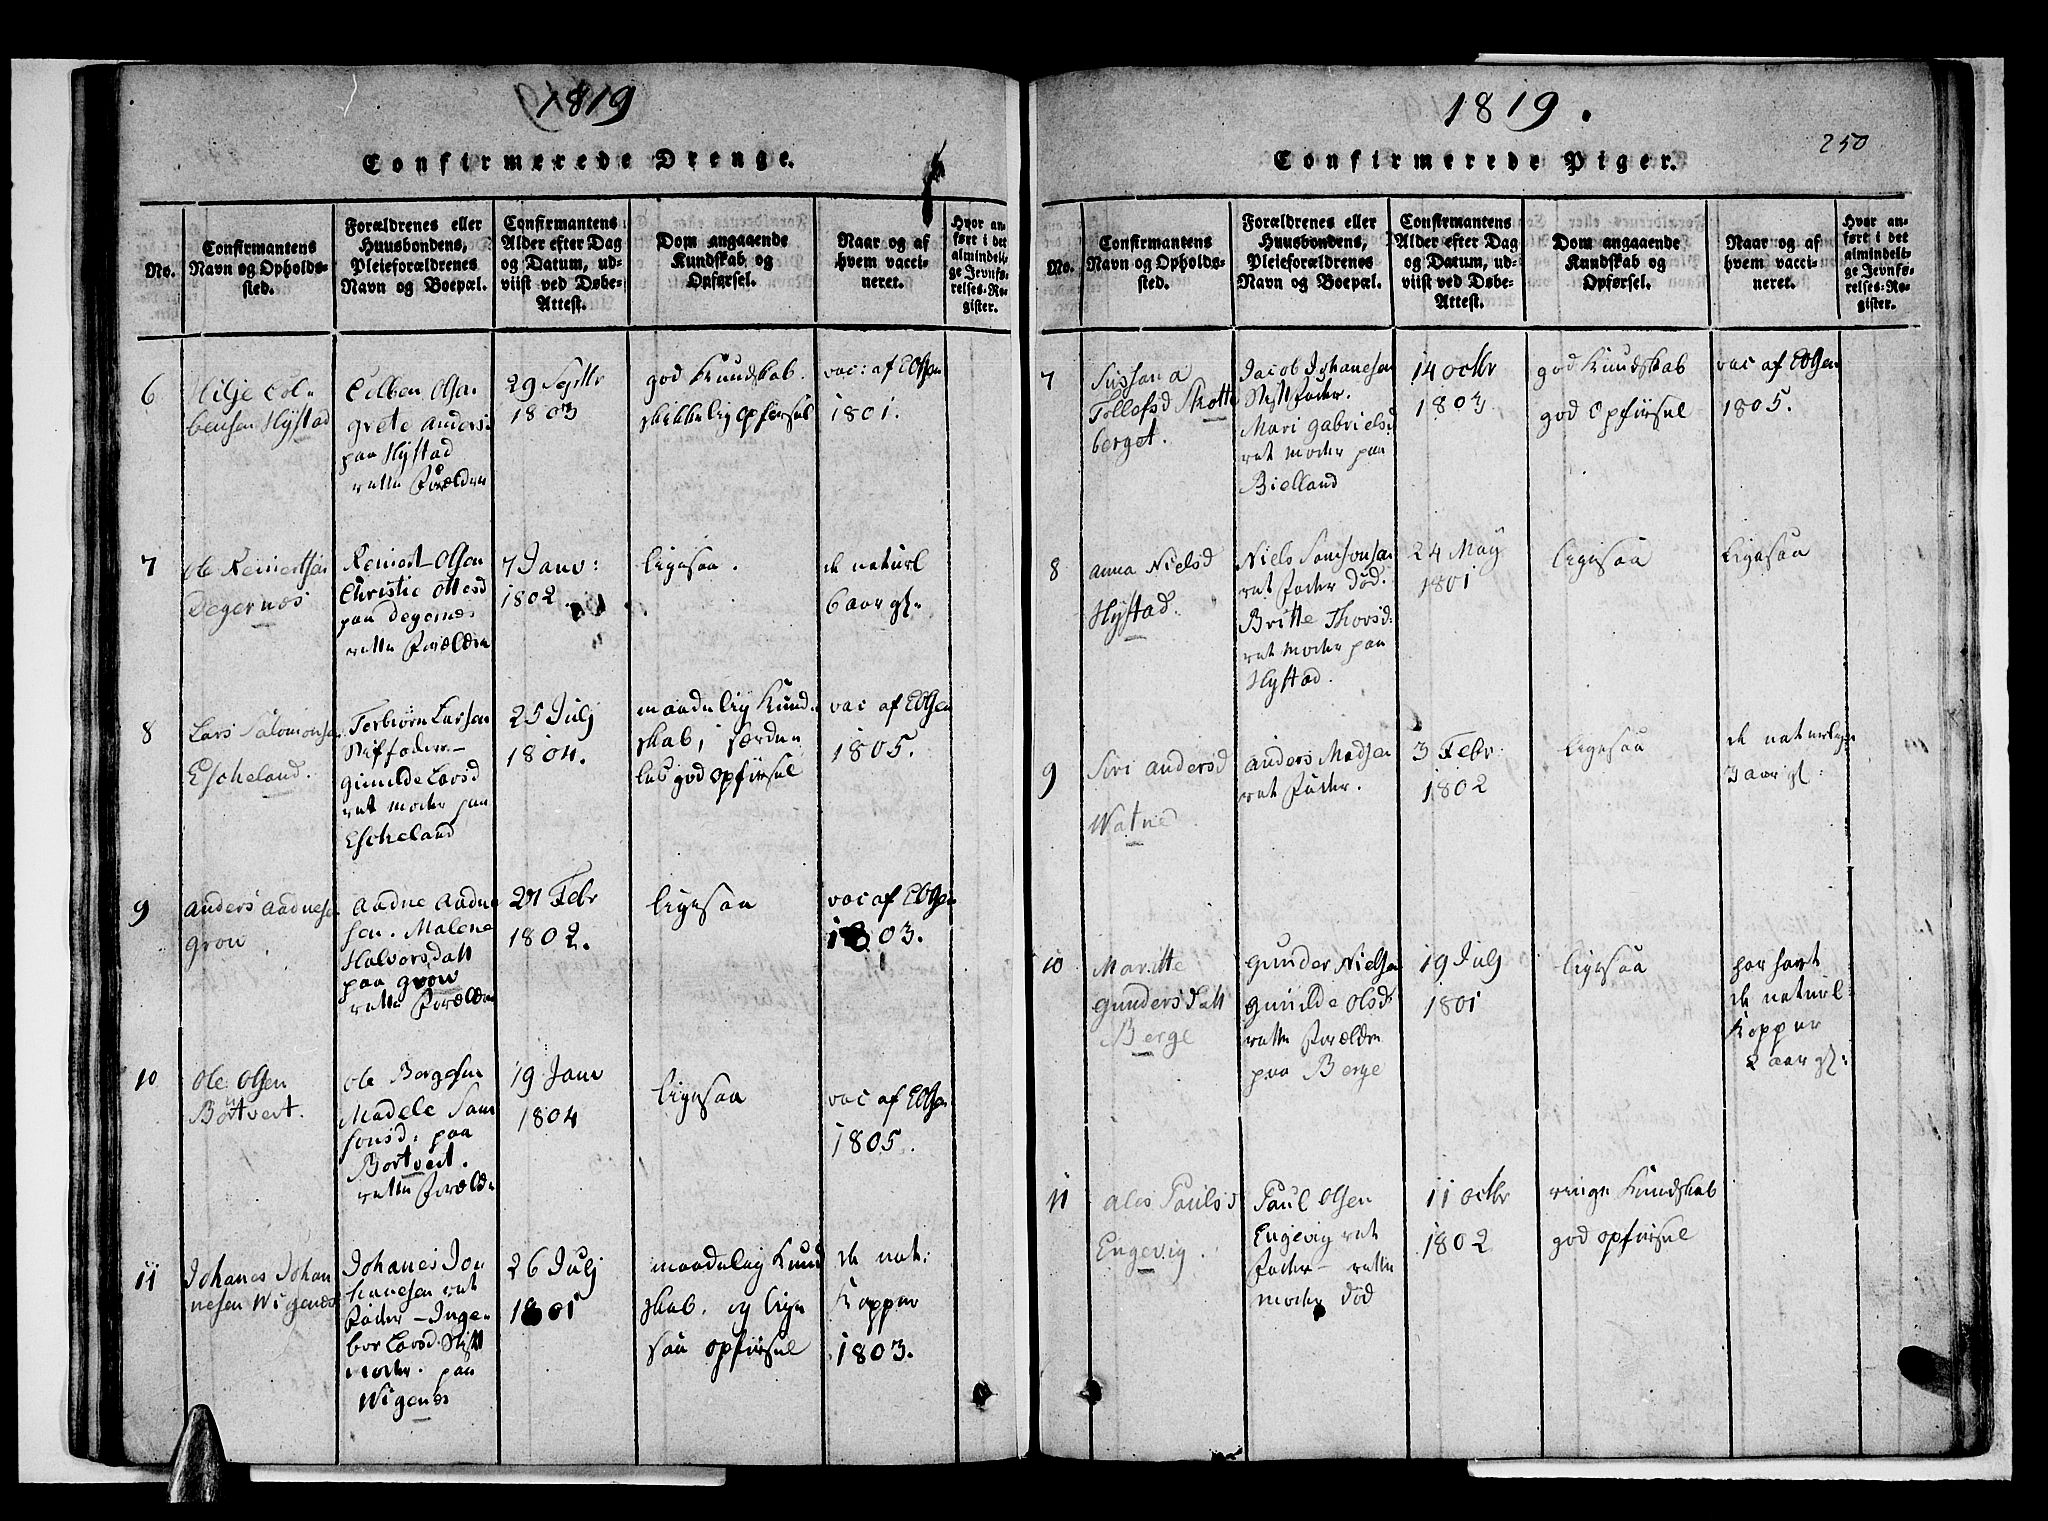 1819
Confirmerede Drenge.
No.
Confirmantens
Navn og Opholds-
sted.
Forældrenes eller
Huusbondens,
Pleieforældrenes
Navn og Boepæl.
Confirmantens
Alder efter Dag
og Datum, ud-
viist ved Døbe-
Attest.
Dom angaaende
Kundskab og
Opførsel.
Naar og af
hvem vacci-
neret.
Hvor an-
ført i det
almindeli-
ge Jevnfø-
relses-Re-
gister.
6
Hilje Col-
bensen Hÿstad
Colben Olsen
Grete Anders:
paa Hÿstad
rette Forældre
29 Septbr
1803
god Kundskab.
skikkelig Opførsel
vac: af EOlsen
1801.
7
Ole Reinertsen
Degernes
Reinert Olsen
Christie Ottesd
paa Degernes
rette Forældre
7 Janv:
1802
ligesaa.
de naturl
6 aar gl:
8
Lars Salomonsen
Escheland.
Torbiørn Larsen
Stiffader –
Gunilde Larsd
ret Moder paa
Escheland
25 Julj
1804.
maadelig Kund
skab, særdee
les god Opførsel
vac af EOlsen
1805.
9
Anders Aadnesen
Grow
Aadne Aadne
sen. Malene
Halvorsdatt
paa Grow
rette Forældre
27 Febr
1802.
ligesaa
vac af EOlsen
1803.
10
Ole Olsen
Bortvert.
Ole Borgesen
Madele Sam
sonsd: paa
Bortvert.
rette Forældre
19 Janv
1804
ligesaa
vac af EOlsen
1805.
11
Johanes Johan
nesen Wigenes
Johanes Jo
hanesen ret
Fader – Inge-
bor Larsd. Stif
Moder. paa
Wigenes
26 Julj
1801
maadelig Kund
skab. og lige
saa Opførsel
de nat:
Kopper
1803.
1819.
250
Confirmerede Piger.
No.
Confirmantens
Navn og Opholds-
sted.
Forældrenes eller
Huusbondens,
Pleieforældrenes
Navn og Boepæl.
Confirmantens
Alder efter Dag
og Datum, ud-
viist ved Døbe-
Attest.
Dom angaaende
Kundskab og
Opførsel.
Naar og af
hvem vacci-
neret.
Hvor an-
ført i det
almindeli-
ge Jevnfø-
relses-Re-
gister.
7
Susana
Tollefsd Skotte
berget.
Jacob Johanesen
Stiffader.
Mari Gabrielsd
ret Moder paa
Bielland
14 octbr
1803
god Kundskab
god Opførsel
vac af EOlsen
1805.
8
Anna Nielsd
Hÿstad.
Niels Samsonsen
ret Fader død.
Britte Thorsd:
ret Moder paa
Hÿstad.
24 Maÿ
1801
ligesaa
ligesaa
9
Siri Andersd
Watned
Anders Madsen
ret Fader.
3 Febr:
1802
ligesaa
de naturlige
3 aar gl:
10
Maritte
Gundersdatt
Berge
Gunder Nielsen
Gunilde Olsd:
rette Forældre
paa Berge
19 Julj
1801
ligesaa
har havt
de naturl:
Kopper
2 aar gl:
11
Ales Paulsd
Engevig.
Paul Olsen
Engevig ret
Fader – rette
Moder død
11 octbr
1802
ringe Kundskab
god Opførsel